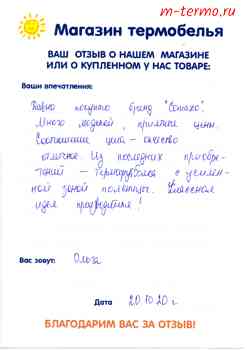 m-termo.ru
Магазин термобелья
ВАШ ОТЗЫВ О НАШЕМ МАГАЗИНЕ
ИЛИ О КУПЛЕННОМ У НАС ТОВАРЕ:
Ваши впечатления:
Давно бренд
Много моделей, приятные цены.
Соотношение цена - качество
отличное. Из последних приобре-
тений - Терморубашка с усилен-
ной зоной поясницы. Классная
идея продумана!
Вас зовут: Ольга
Дата 20.10.20 г.
БЛАГОДАРИМ ВАС ЗА ОТЗЫВ!